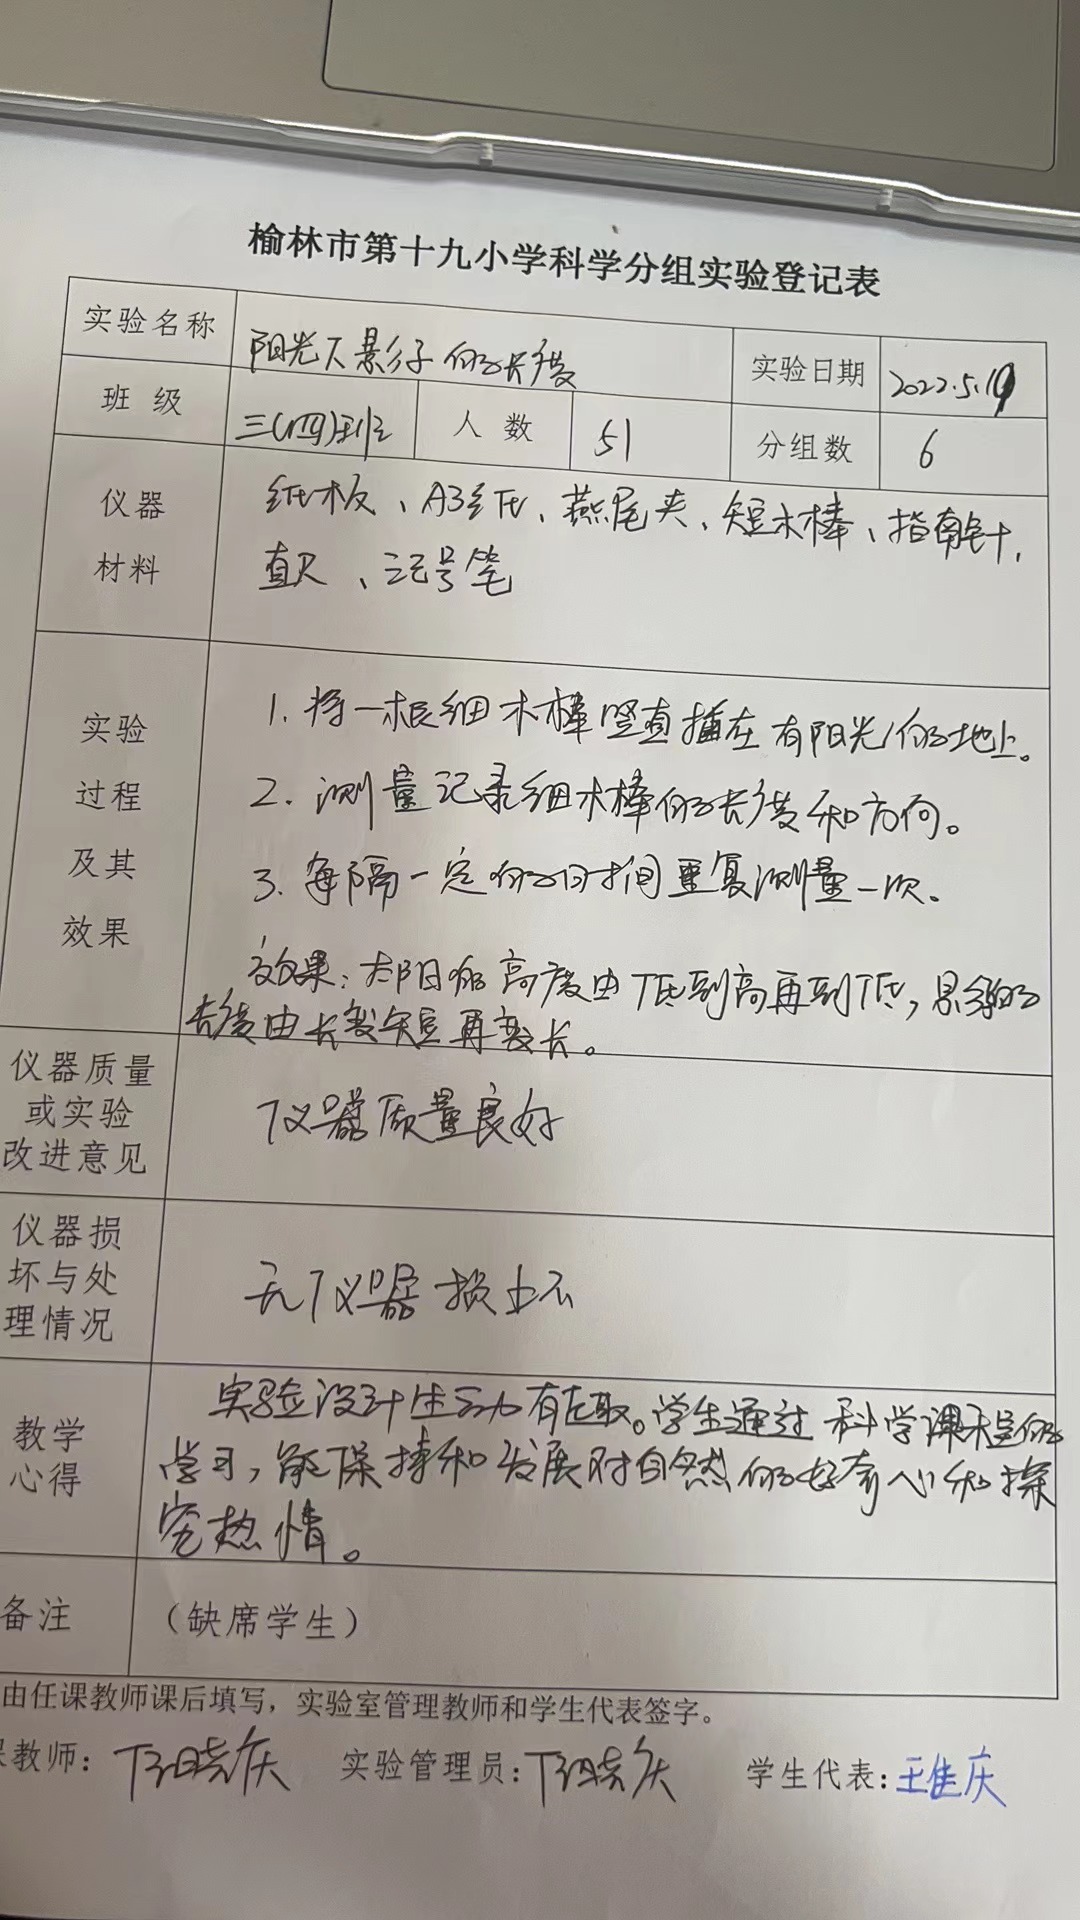 榆林市第十九小学科学分组实验登记表
实验名称 阳光下影子的长度 实验日期 2022.5.19
班 级 三(四)班 人 数 51 分组数 6
仪器 纸板、A3纸、燕尾夹、短木棒、指南针,
材料 直尺、记号笔
实验 1. 将一根细木棒竖直插在有阳光的地上。
过程 2. 测量记录细木棒的长度和方向。
及其 3. 每隔一定的时间重复测量一次。
效果 效果:太阳的高度由低到高再到低,影子的
长度由长变短再变长。
仪器质量
或实验 仪器质量良好
改进意见
仪器损
坏与处 无仪器损坏
理情况
教学 实验设计生动有趣。学生通过科学课程的
心得 学习,能保持和发展对自然的好奇心和探
究热情。
备注 (缺席学生)
由任课教师课后填写,实验室管理教师和学生代表签字。
课教师: 实验管理员: 学生代表:王佳庆